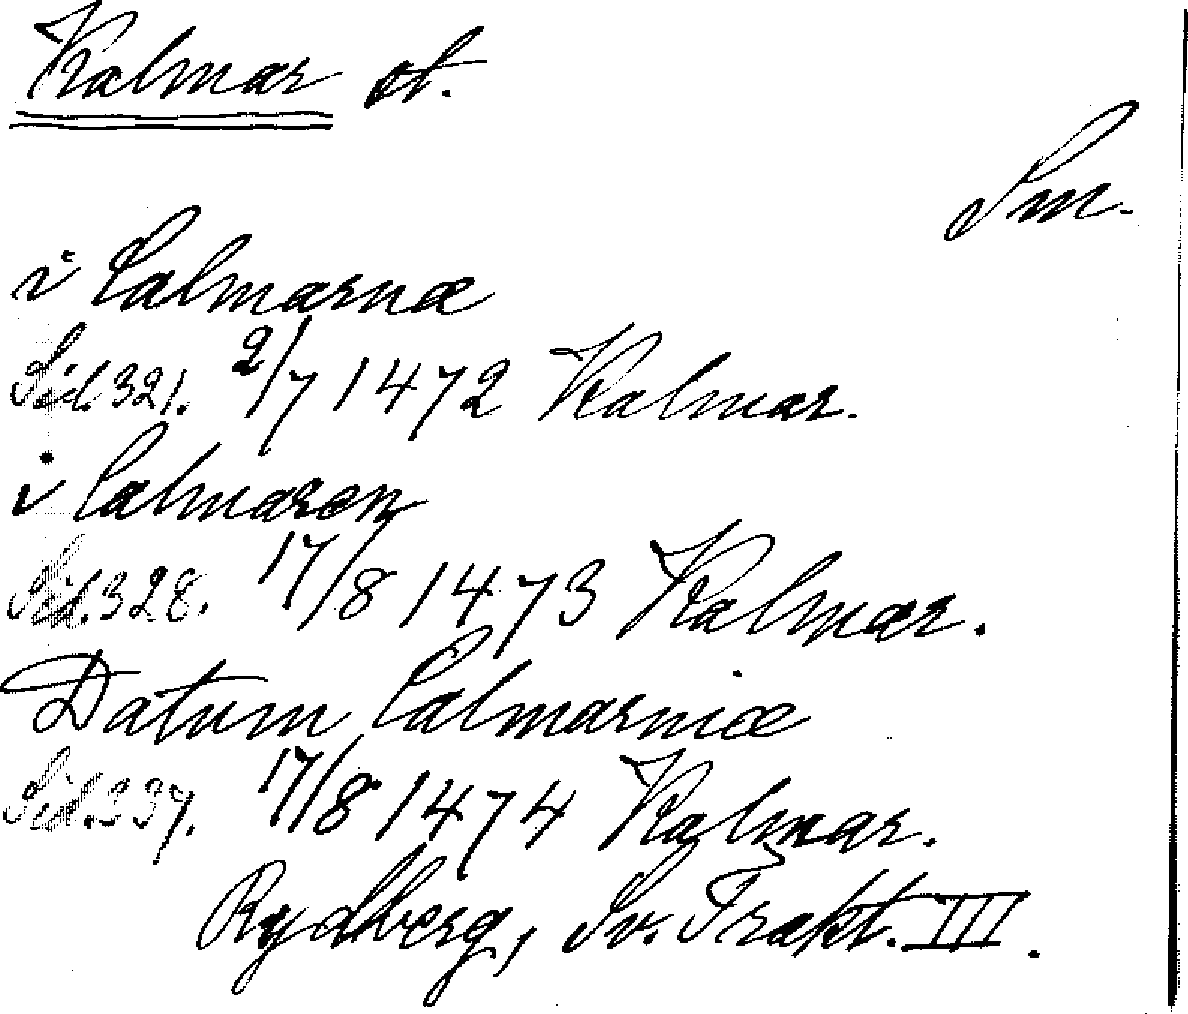 Kalmar st.
Sm.
i Calmarnæ
Sid. 321. 2/7 1472 Kalmar.
i Calmaren
Sid. 328. 17/8 1473 Kalmar.
Datum Calmarniæ
Sid. 337. 17/8 1474 Kalmar.
Rydberg, Sv. Trakt. III.